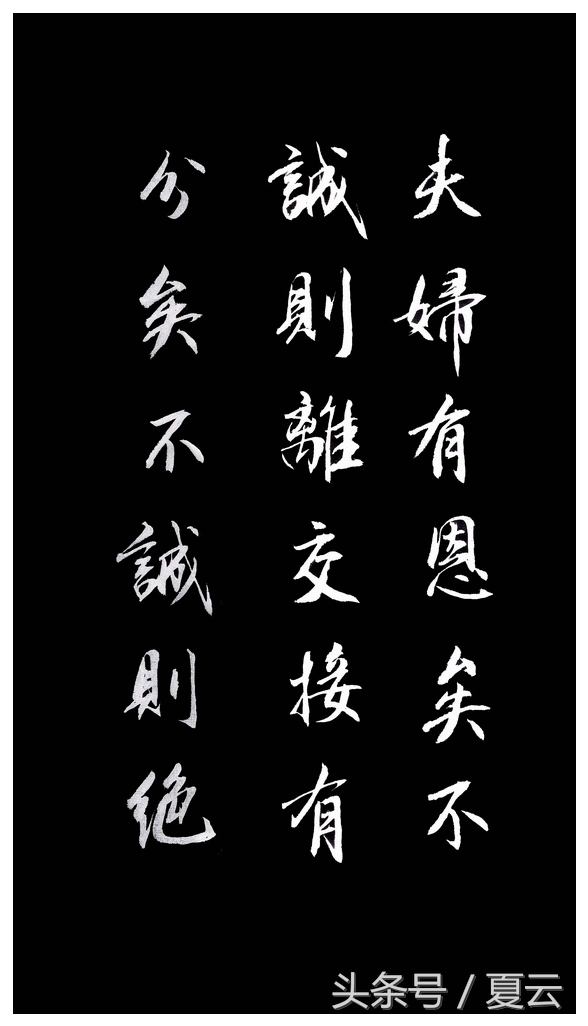 夫婦有恩矣不
誠則離交接有
分矣不誠則絶
头条号 / 夏云